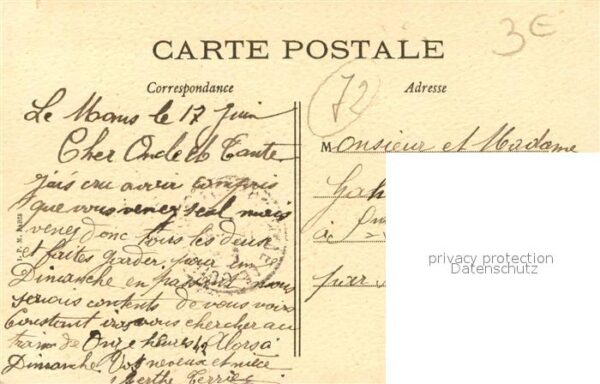 3€
CARTE POSTALE
Correspondance
72
Adresse
Le Mans le 17 Juin
Cher Oncle et Tante
j'ais cru avoir compris
que vous venez seul mais
venez donc tous les deux
et faites garder, pour un
Dimanche en passant nous
serions contents de vous voir
Constant ira vous chercher au
train de Onze heures Alors à
Dimanche Vos neveux et nièce
Berthe
Monsieur et Madame
à
par
privacy protection
Datenschutz